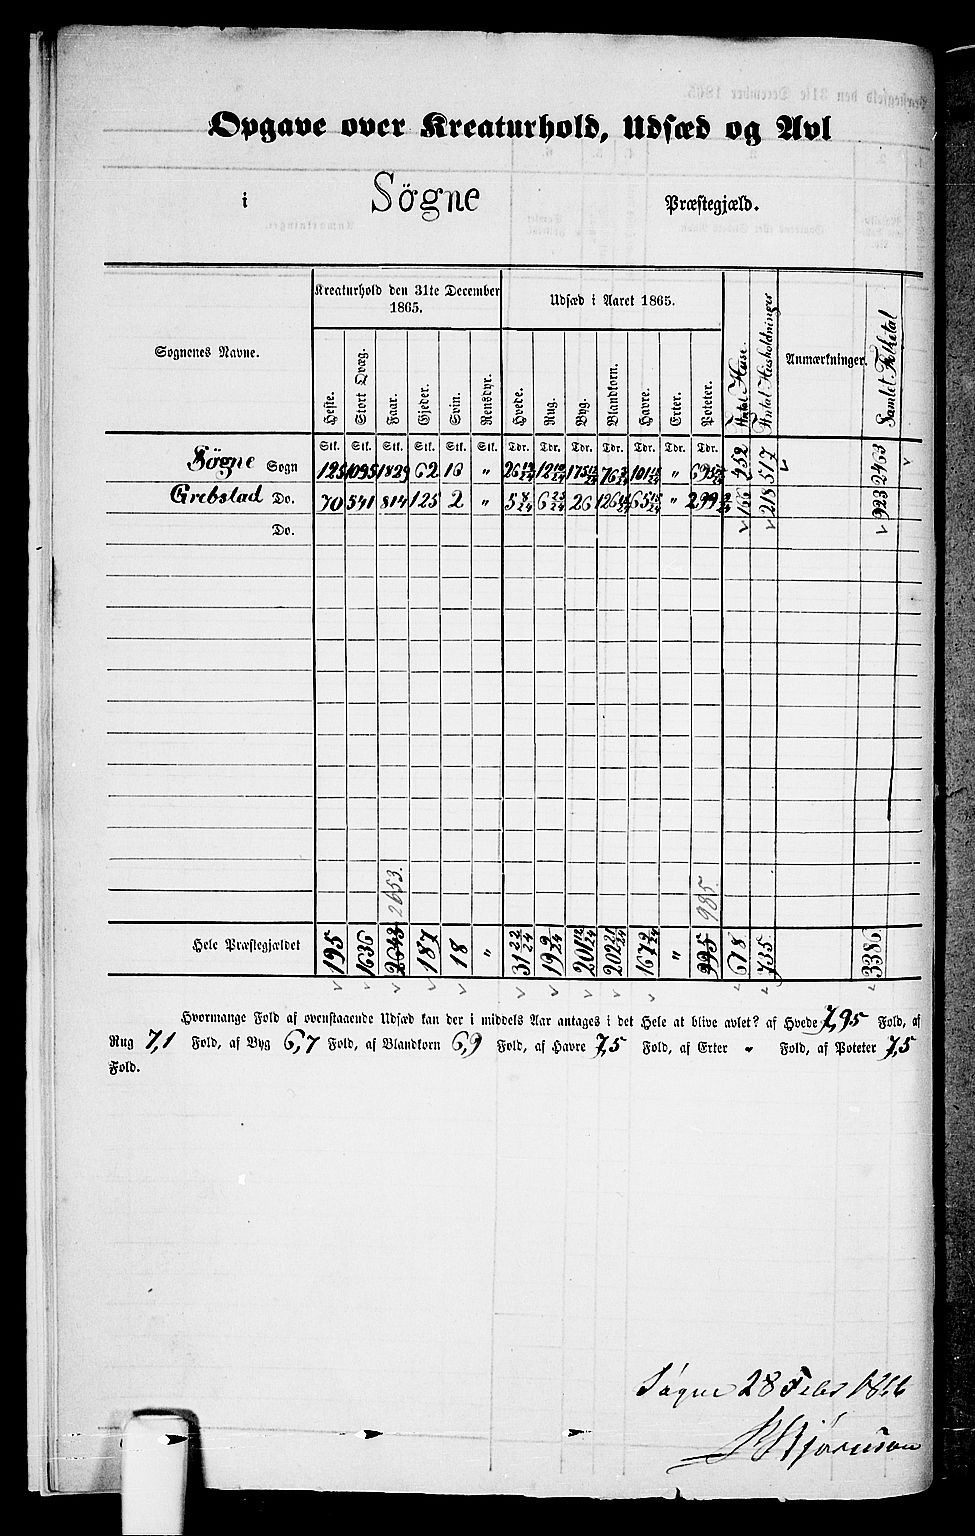 Opgave over Kreaturhold, Udsæd og Avl
i Sögne Præstegjæld.
Sognenes Navne.
Kreaturhold den 31te December 1865.
Udsæd i Aaret 1865.
Heste. Stort Qvæg. Faar. Gjeder. Svin. Rensdyr. Hvede. Rug. Byg. Blandkorn. Havre. Erter. Poteter. Antal Huse. Antal Husholdninger Anmærkninger. Samlet Folketal
Stk. Stk. Stk. Stk. Stk. Stk. Tdr. Tdr. Tdr. Tdr. Tdr. Tdr. Tdr.
Sögne Sogn 125 1095 1829 62 16 " 26 12 175 76 101 " 695 452 517 2463
Grebstad Do. 70 541 814 125 2 " 5 8/24 6 26 126 65 " 299 166 218 923
Do.
2653. 985.
Hele Præstegjældet 195 1636 2643 187 18 " 31 22/24 19 9/24 201 12/24 202 21/24 167 9/24 " 995 618 735 3386
Hvormange Fold af ovenstaaende Udsæd kan der i middels Aar antages i det Hele at blive avlet? af Hvede 7,95 Fold, af
Rug 7,1 Fold, af Byg 6,7 Fold, af Blandkorn 6,9 Fold, af Havre 7,5 Fold, af Erter " Fold, af Poteter 7,5
Fold.
Søgne 28 Febr 1866
Bjørnson